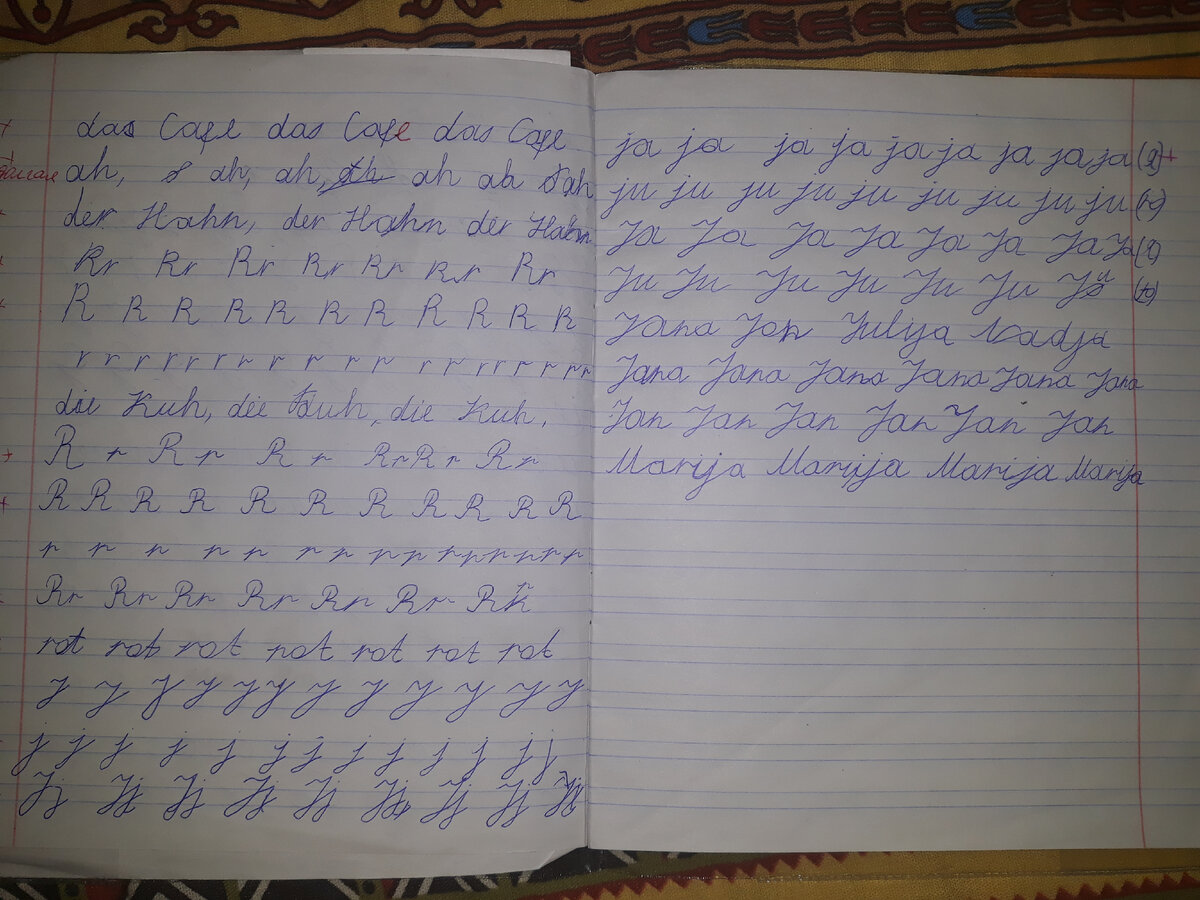 das Cafe das Cafe das Cafe
ah, ah, ah, ah ah ah
der Hahn, der Hahn der Hahn
Rr Rr Rr Rr Rr Rr Rr
R R R R R R R R R R R
r r r r r r r r r r r r r r r r r r r r
die Kuh, die Kuh, die Kuh,
R r R r R r Rr R r Rr
R R R R R R R R R R R
r r r r r r r r r r r r r r r
Rr Rr Rr Rr Rr Rr Rr
rot rot rot rot rot rot rot
J J J J J J J J J J J J J
j j j j j j j j j j j j j
Jj Jj Jj Jj Jj Jj Jj Jj Jj
ja ja ja ja ja ja ja ja ja (я)
ju ju ju ju ju ju ju ju ju (ю)
Ja Ja Ja Ja Ja Ja Ja Ja (я)
Ju Ju Ju Ju Ju Ju Ju (ю)
Jana Jan Julija Nadja
Jana Jana Jana Jana Jana Jana
Jan Jan Jan Jan Jan Jan
Marija Marija Marija Marija